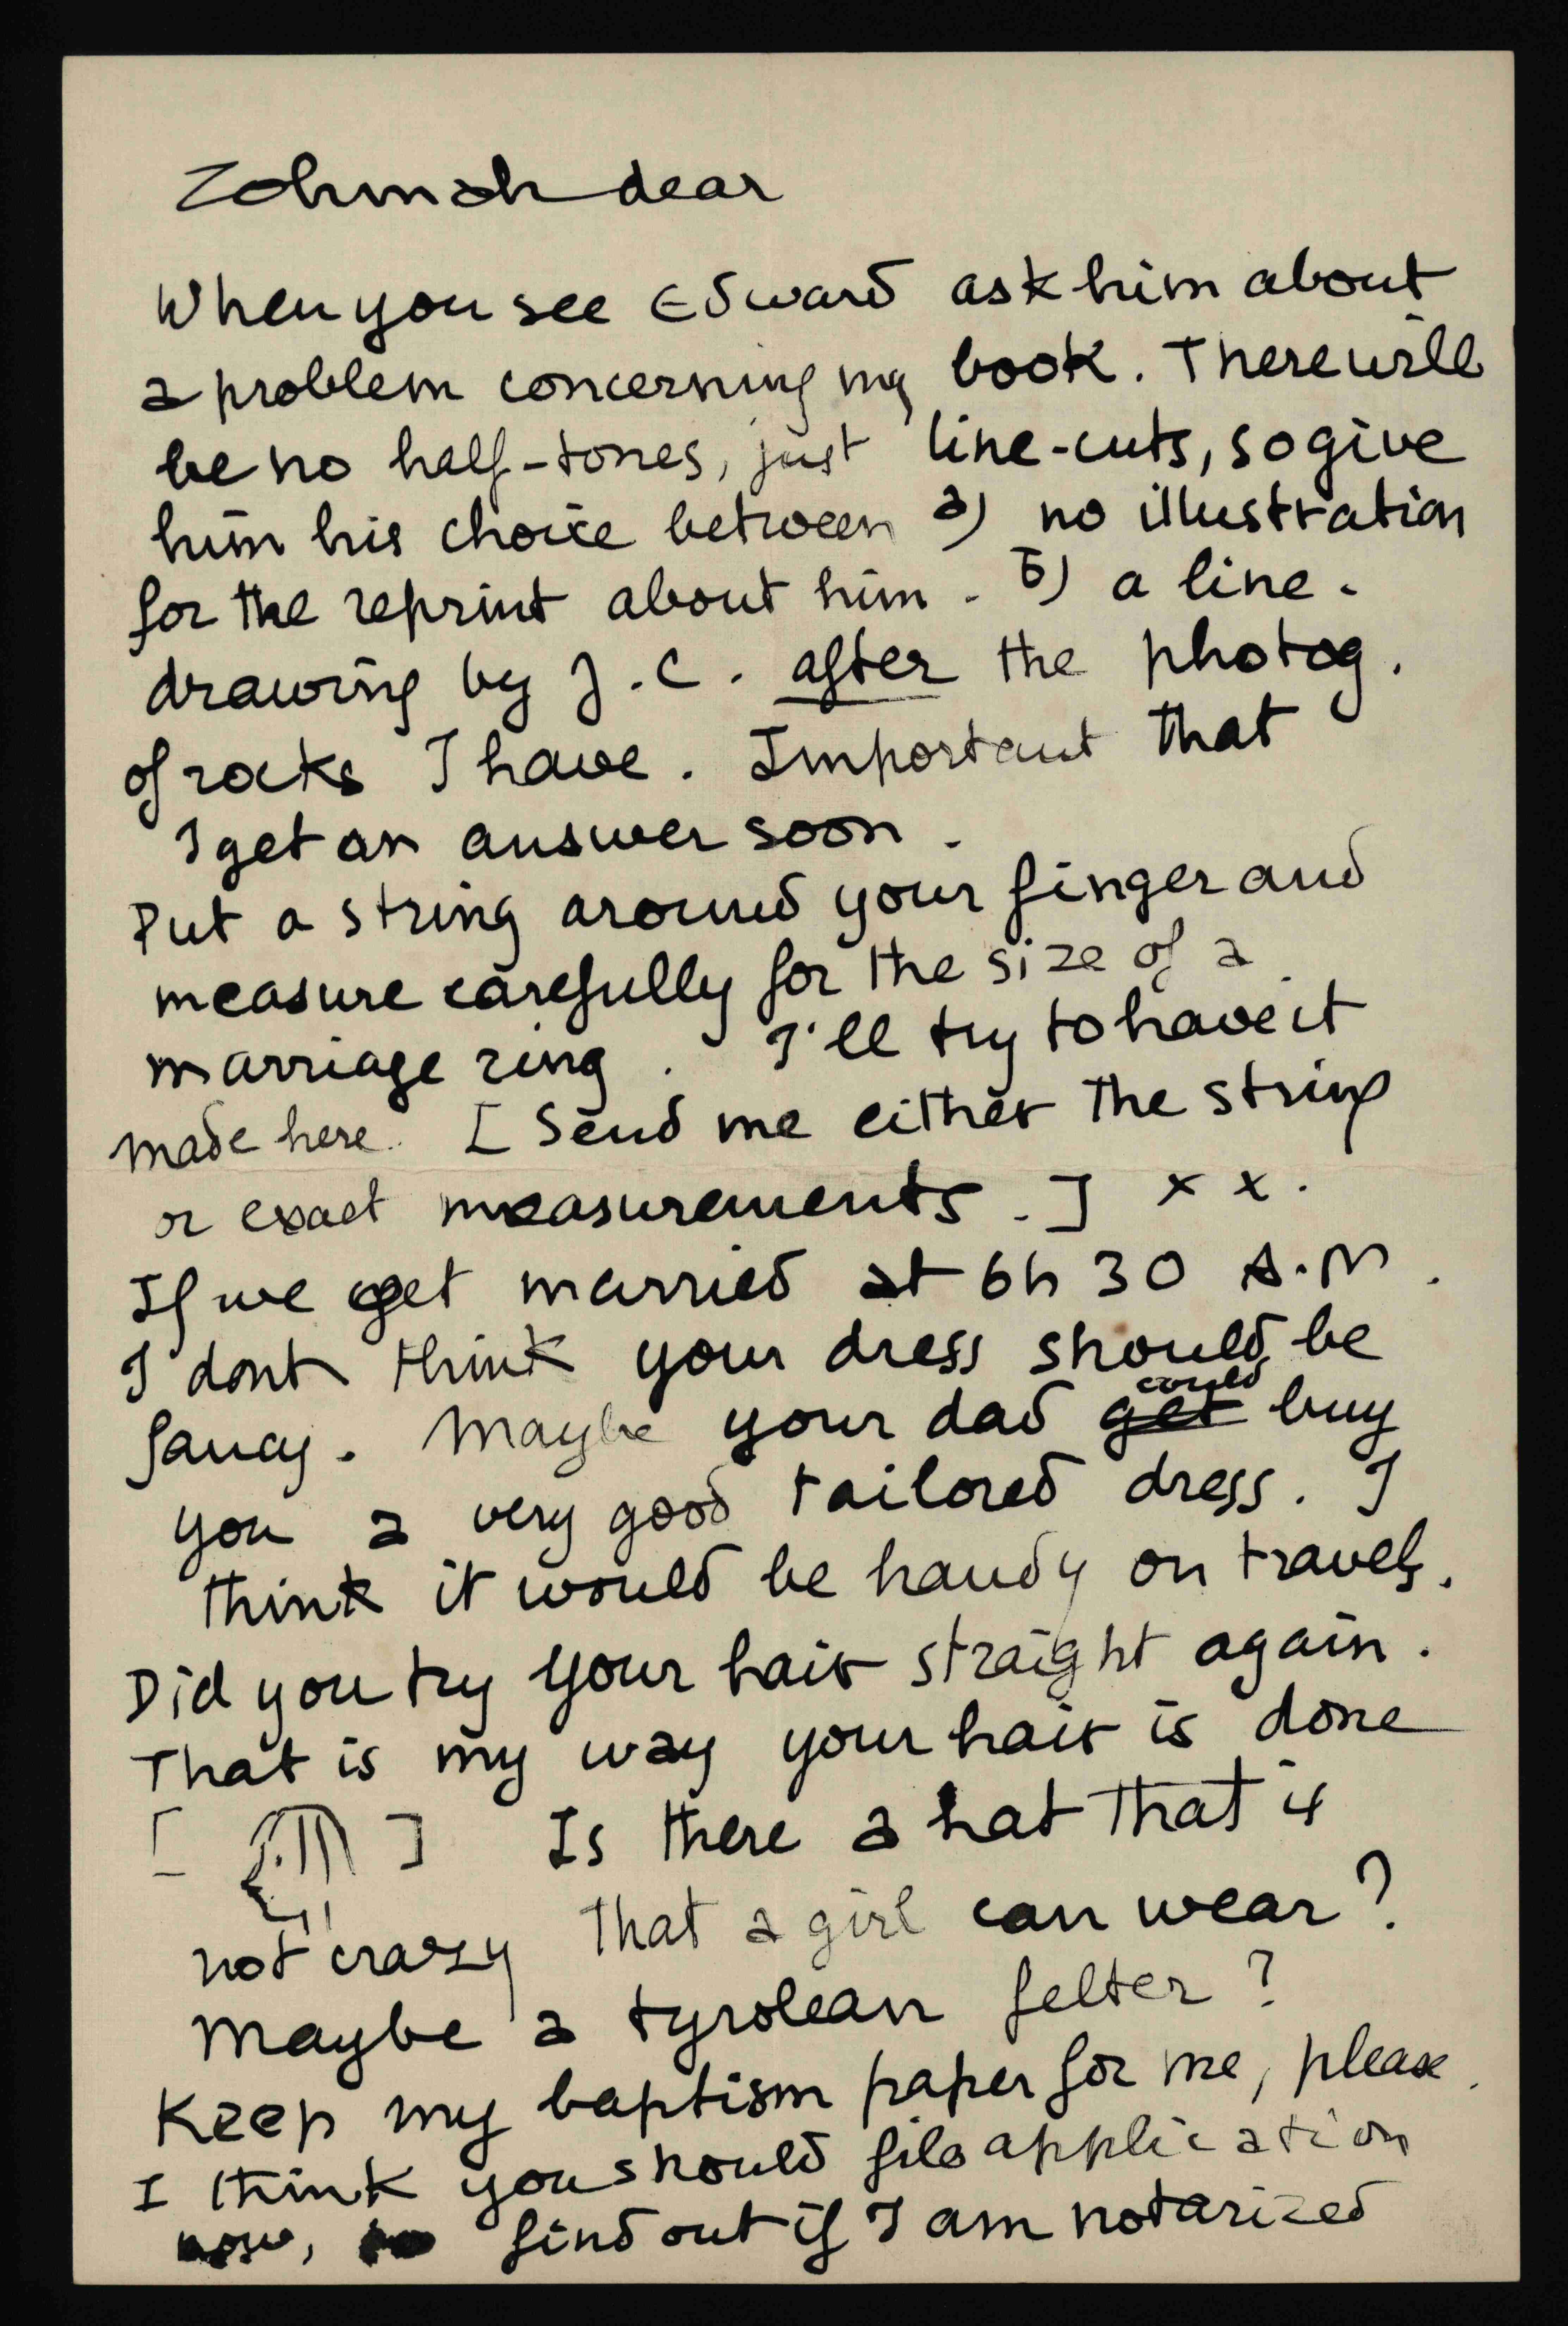 Zohmah dear
When you see Edward ask him about
a problem concerning my book. There will
be no half-tones, just line-cuts, so give
him his choice between a) no illustration
for the reprint about him. b) a line-
drawing by J.C. after the photog.
of rocks I have. Important that
I get an answer soon.
Put a string around your finger and
measure carefully for the size of a
marriage ring. I'll try to have it
made here. [Send me either the string
or exact measurements.] x x.
If we get married at 6h 30 A.M.
I dont think your dress should be
fancy. Maybe your dad get could buy
you a very good tailored dress. I
think it would be handy on travels.
Did you try your hair straight again.
That is my way your hair is done
[ ] Is there a hat that is
not crazy that a girl can wear?
Maybe a tyrolean felter?
Keep my baptism paper for me, please.
I think you should file application
now, to find out if I am notarized